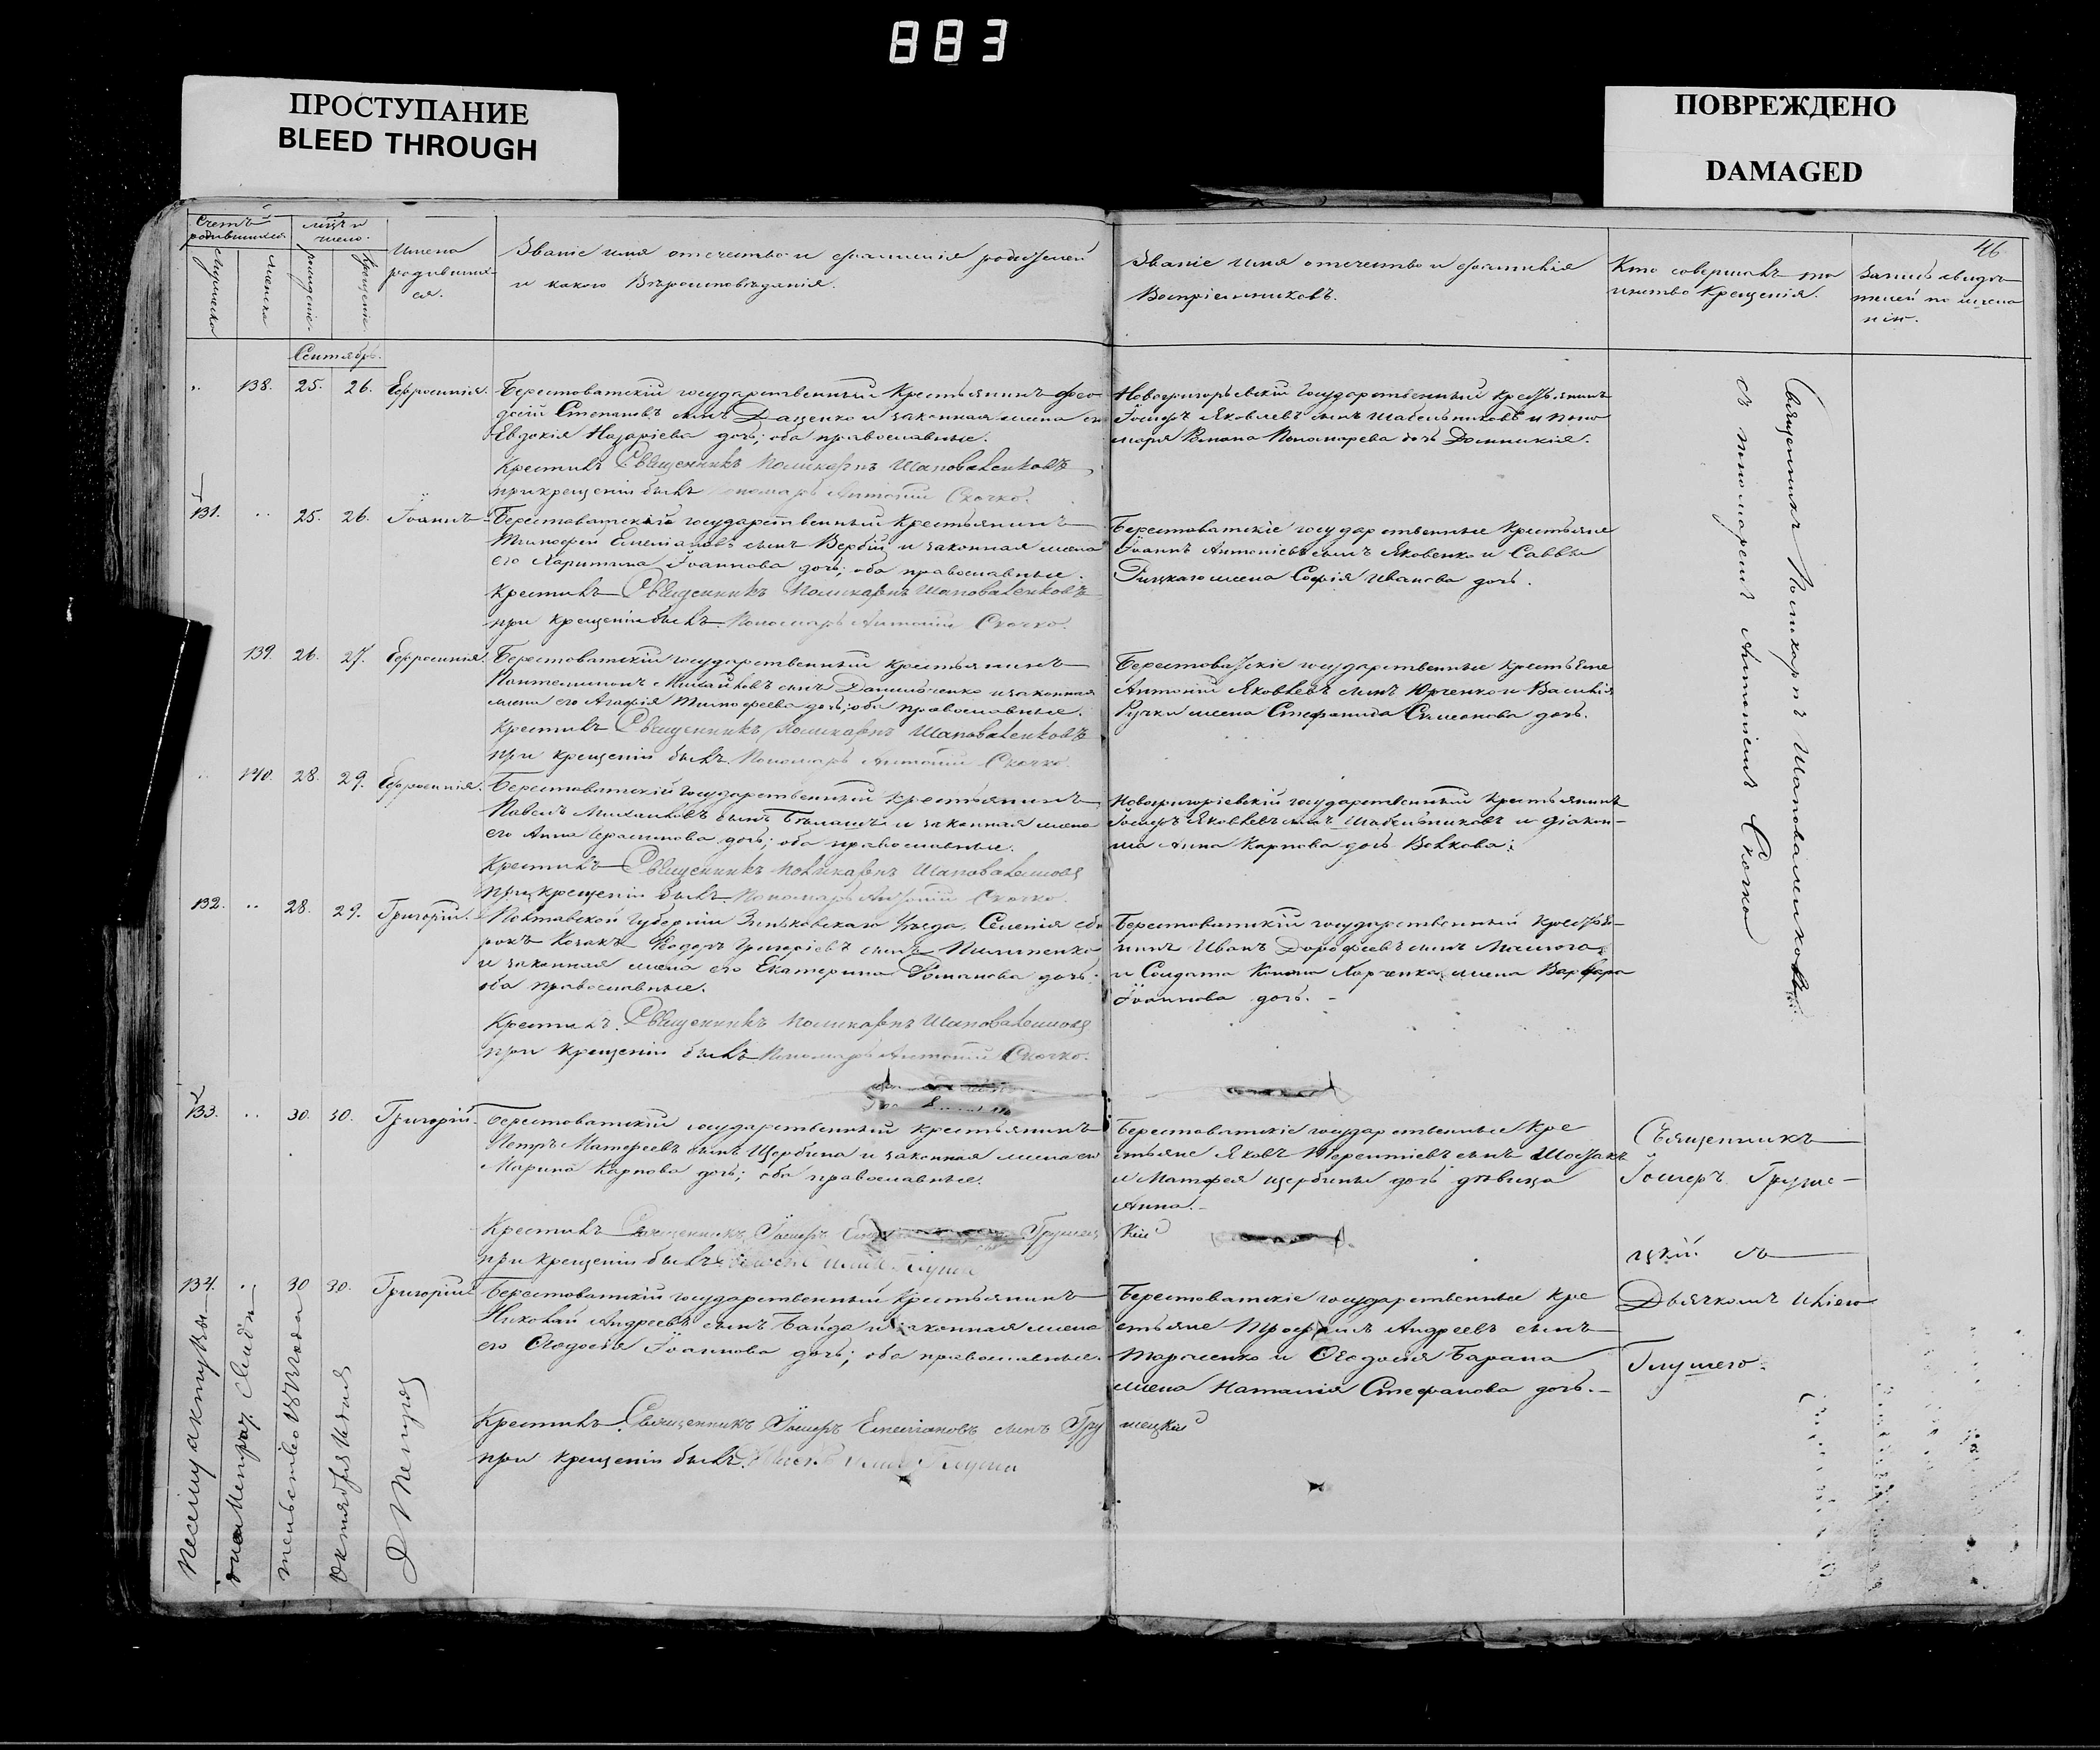 883
ПРОСТУПАНИЕ
BLEED THROUGH
ПОВРЕЖДЕНО
DAMAGED
46
Счетъ родившихся
мужеска
женска
мѣс: и число.
рожденіе.
крещеніе.
Имена родившихся.
Званіе имя отечество и фамилія родителей
и какого Вѣроисповѣданія.
Званіе имя отечество и фамилія
Воспріемниковъ.
Кто совершалъ та
инство Крещенія.
Сентябрь.
138. 25. 26. Ефросинія.
Берестоватскій государственный Крестьянинъ Ѳео
досій Степановъ сынъ Даценко и законная жена его
Евдокія Назаріева дочь; оба православные.
Крестилъ Священникъ Поликарпъ Шаповаленковъ
при крещеніи былъ Пономарь Антоній Скочко.
Новогригорьевскій государственный Крестьянинъ
Іосифъ Яковлевъ сынъ Шабельниковъ и поно
маря Романа Пономарева дочь Домникія.
131. 25. 26. Іоаннъ
Берестоватскій государственный Крестьянинъ
Тимофей Емеліановъ сынъ Вербій и законная жена
его Харитина Іоаннова дочь; оба православные.
Крестилъ Священникъ Поликарпъ Шаповаленковъ
при Крещеніи былъ Пономарь Антоній Скочко.
Берестоватскіе государственные Крестьяне
Іоаннъ Антоніевъ сынъ Яковенко и Саввы
жена Софія Иванова дочь.
139. 26. 27. Ефросинія.
Берестоватскій государственный крестьянинъ
Пантелимонъ Михайловъ сынъ Данильченко и законная
жена его Агафія Тимофеева дочь; оба православные.
Крестилъ Священникъ Поликарпъ Шаповаленковъ
при крещеніи былъ Пономарь Антоній Скочко.
Берестоватскіе государственные крестьяне
Антоній Яковлевъ сынъ Юрченко и Василія
Ручки жена Стефанида Симеонова дочь.
140. 28. 29. Ефросинія.
Берестоватскій государственный крестьянинъ
Павелъ Михайловъ сынъ и законная жена
его Анна Герасимова дочь; оба православные.
Крестилъ Священникъ Поликарпъ Шаповаленковъ
при крещеніи былъ Пономарь Антоній Скочко.
Новогригоріевскій государственный Крестьянинъ
Іосифъ Яковлевъ сынъ Шабельниковъ и діакон-
ша Анна Карпова дочь Волкова.
132. 28. 29. Григорій.
Полтавской Губерніи Зеньковскаго Уѣзда, Селенія
Козакъ Ѳедоръ Григоріевъ сынъ Пилипенко
и законная жена его Екатерина Романова дочь
оба православные.
Крестилъ Священникъ Поликарпъ Шаповаленковъ
при Крещеніи былъ Пономарь Антоній Скочко.
Берестоватскій государственный Крестья-
нинъ Иванъ Дорофеевъ сынъ
и Солдата Конона Харченка жена Варвара
Іоаннова дочь.
Священникъ Поликарпъ Шаповаленковъ
съ пономаремъ Антоніемъ Скочко
133. 30. 30. Григорій.
Берестоватскій государственный крестьянинъ
Петръ Матфеевъ сынъ Щербина и законная жена его
Марина Карпова дочь; оба православные.
Крестилъ Священникъ Іосифъ Грушец
кій
при крещеніи былъ
Берестоватскіе государственные Кре
стьяне Яковъ Терентіевъ сынъ
и Матфея Щербины дочь дѣвица
Анна.
134. 30 30. Григорій
Берестоватскій государственный Крестьянинъ
Николай Андреевъ сынъ Байда и законная жена
его Ѳеодосія Іоаннова дочь; оба православные.
Крестилъ Священникъ Іосифъ Емеліановъ сынъ Гру
шецкій
при крещеніи былъ
Берестоватскіе государственные Кре
стьяне Трофимъ Андреевъ сынъ
Тарасенко и Ѳеодосія Барана
жена Наталія Стефанова дочь.
Священникъ
Іосифъ Груше-
цкій съ
Дьячкомъ Иліею